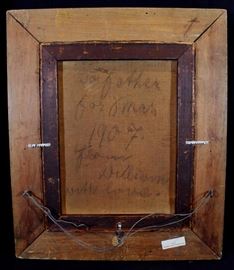 To father
for Xmas
1907
from
William
with love